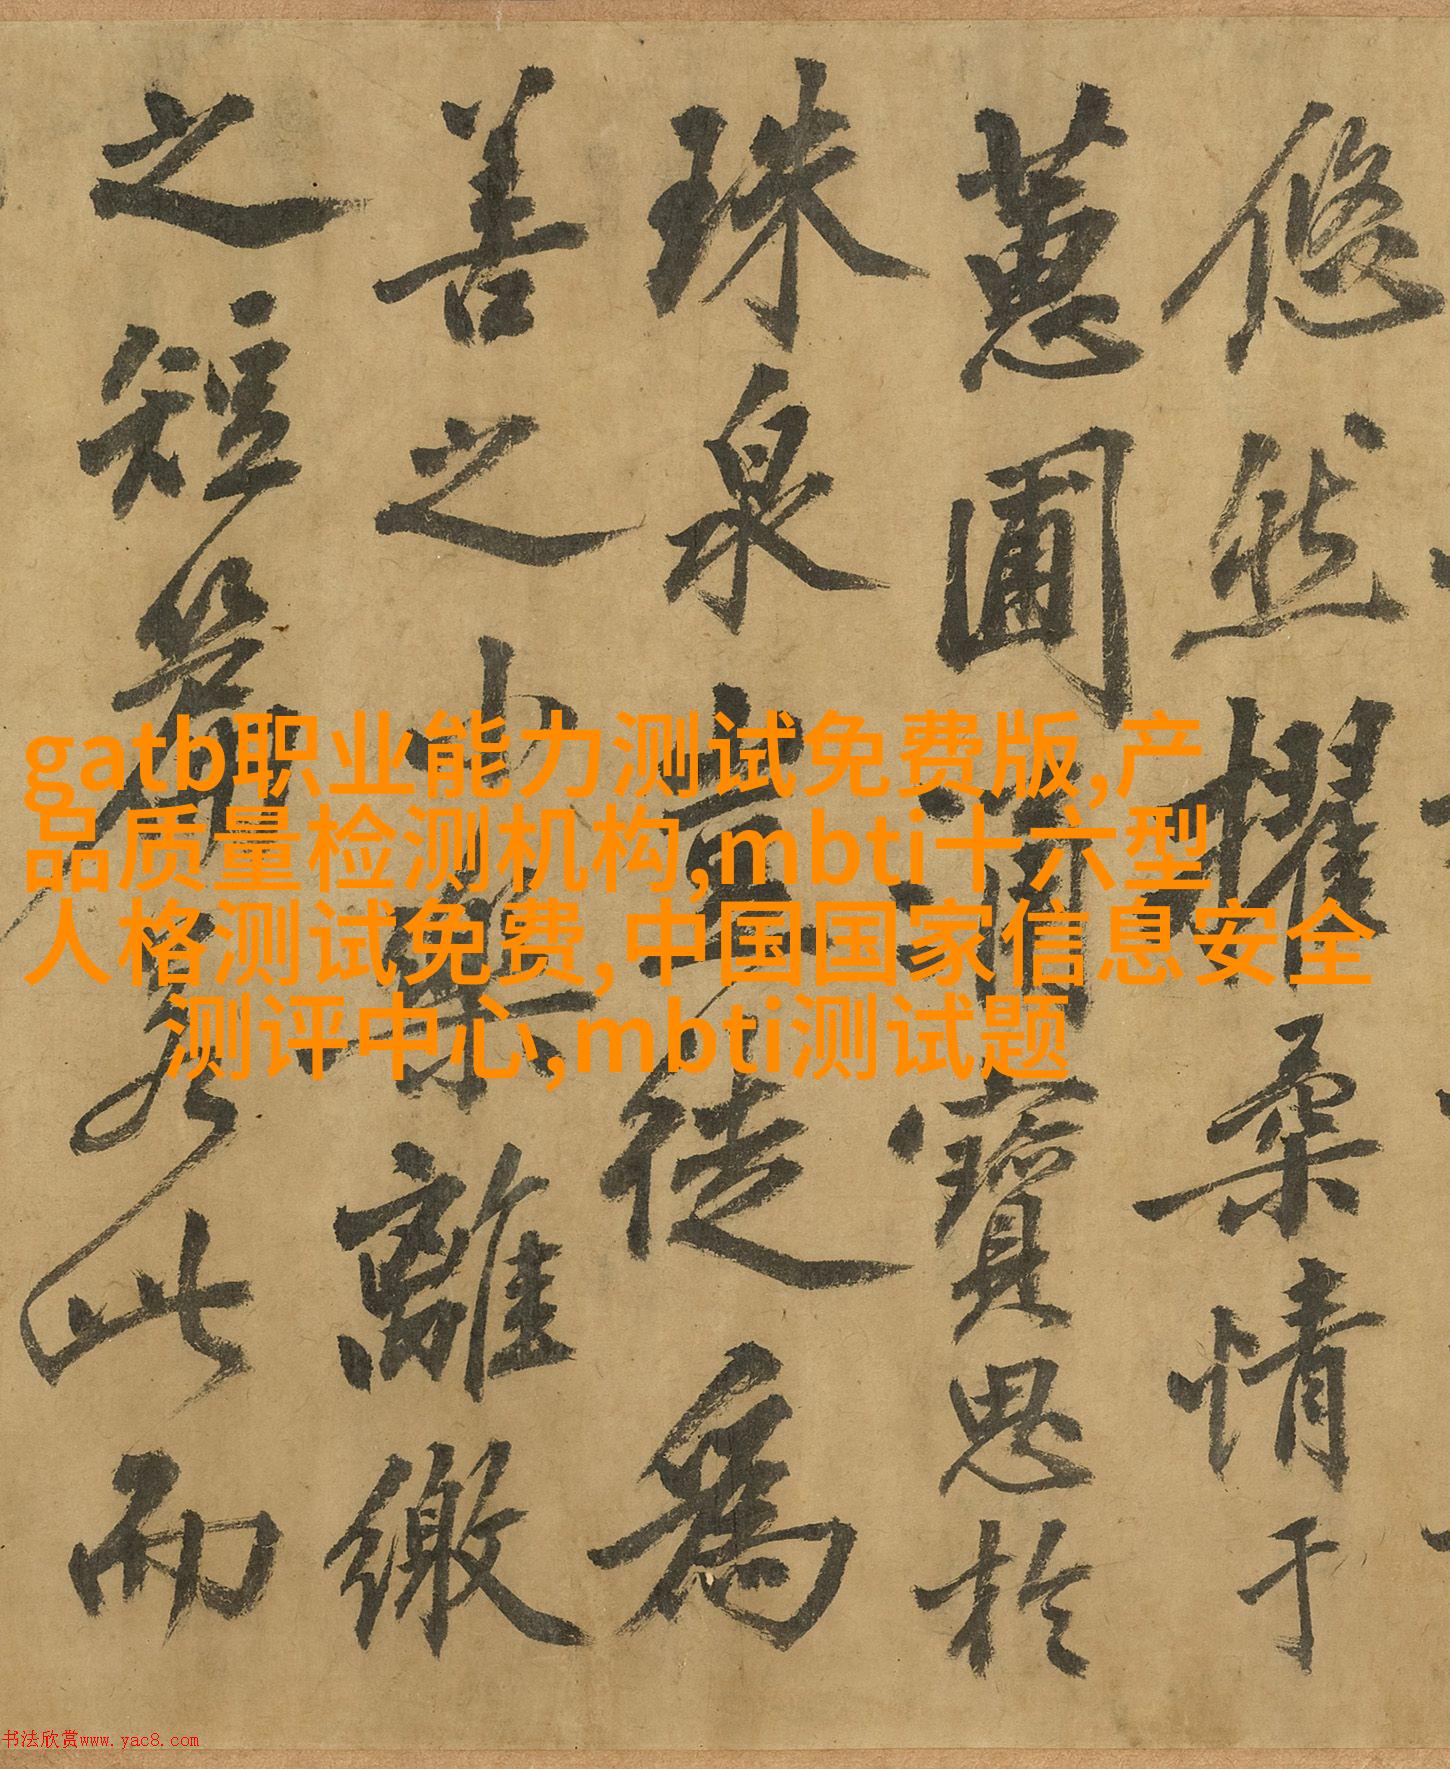 gatb职业能力测试免费版,产
品质量检测机构,mbti十六型
人格测试免费,中国国家信息安全
测评中心,mbti测试题
悠然擢柔情于
蕙圃寶思於
珠泉豈徒為
善之小樂離繳
之短若此而
书法欣赏www.yac8.com